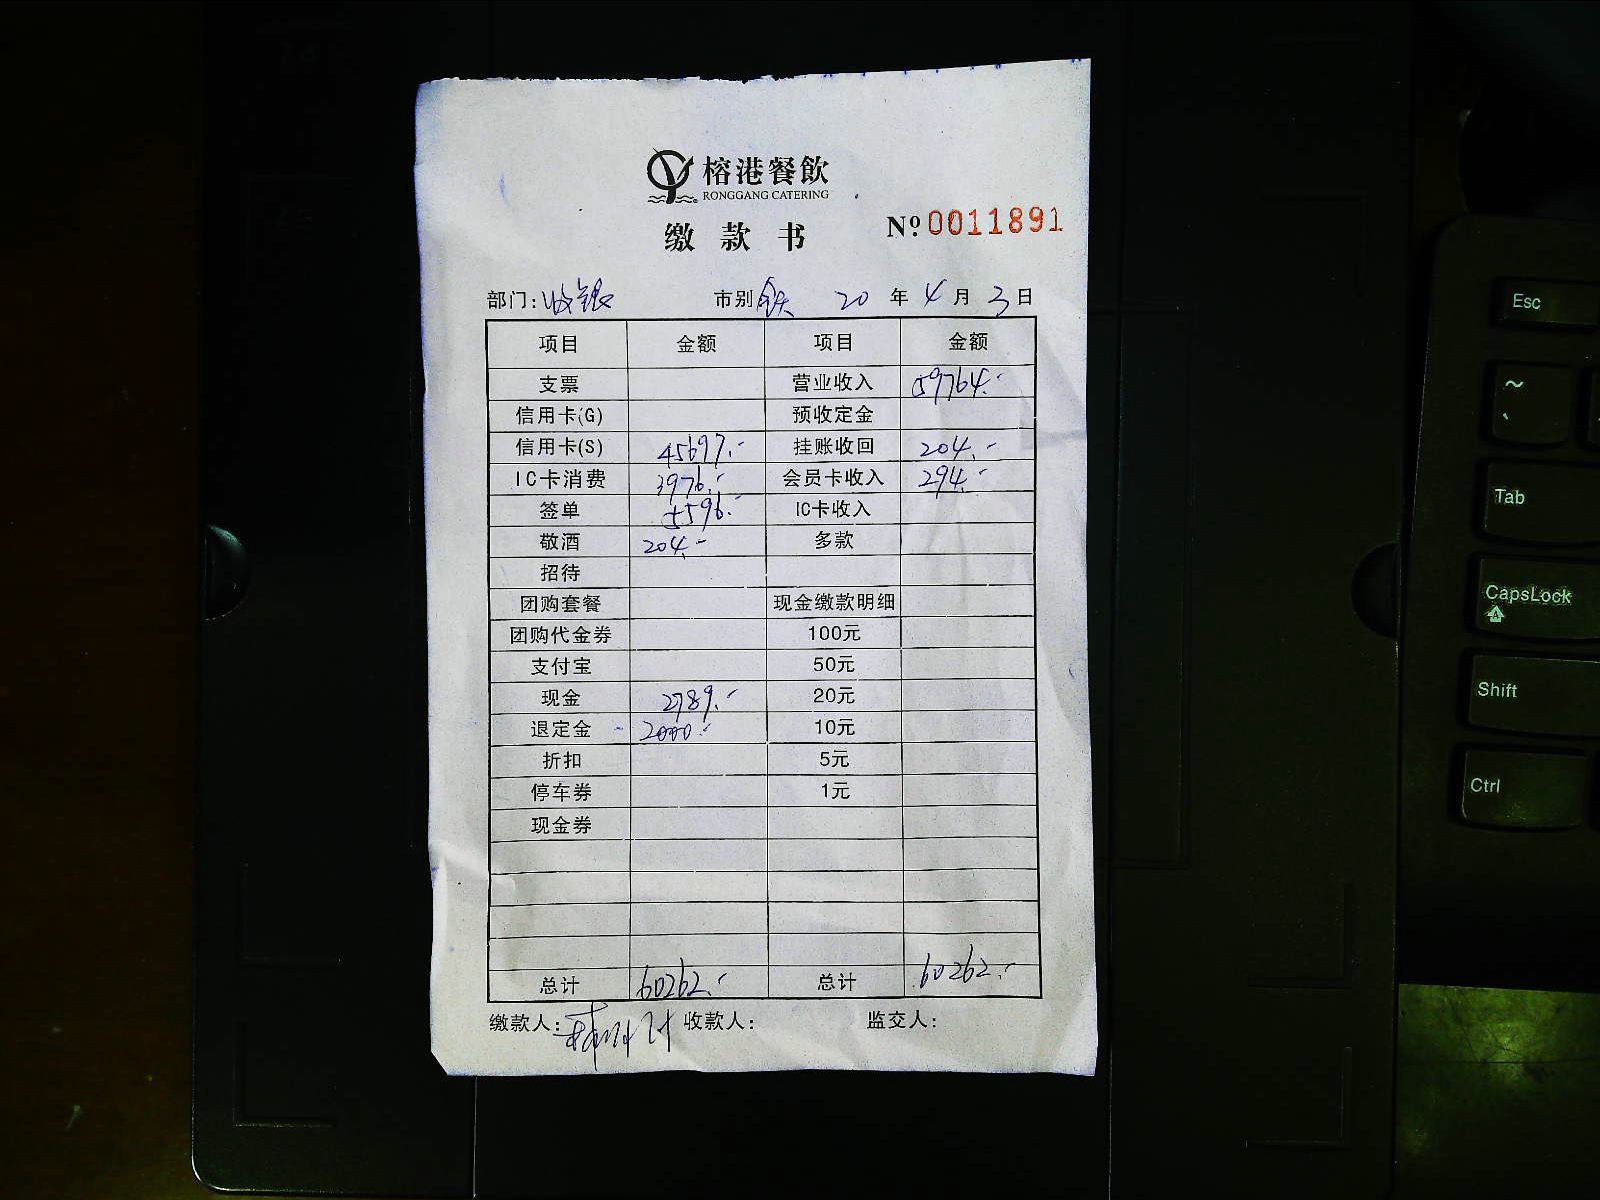 榕港餐飲
RONGGANG CATERING
缴款书 Nº 0011891
部门: 收银 市别 20 年 4 月 3 日
项目 金额 项目 金额
支票 营业收入 59764.-
信用卡(G) 预收定金
信用卡(S) 45697.- 挂账收回 204.-
IC卡消费 3976.- 会员卡收入 294.-
签单 5596.- IC卡收入
敬酒 204.- 多款
招待
团购套餐 现金缴款明细
团购代金券 100元
支付宝 50元
现金 2789.- 20元
退定金 - 2000.- 10元
折扣 5元
停车券 1元
现金券
总计 60262.- 总计 60262.-
缴款人: 收款人: 监交人:
Esc
~
Tab
CapsLock
Shift
Ctrl